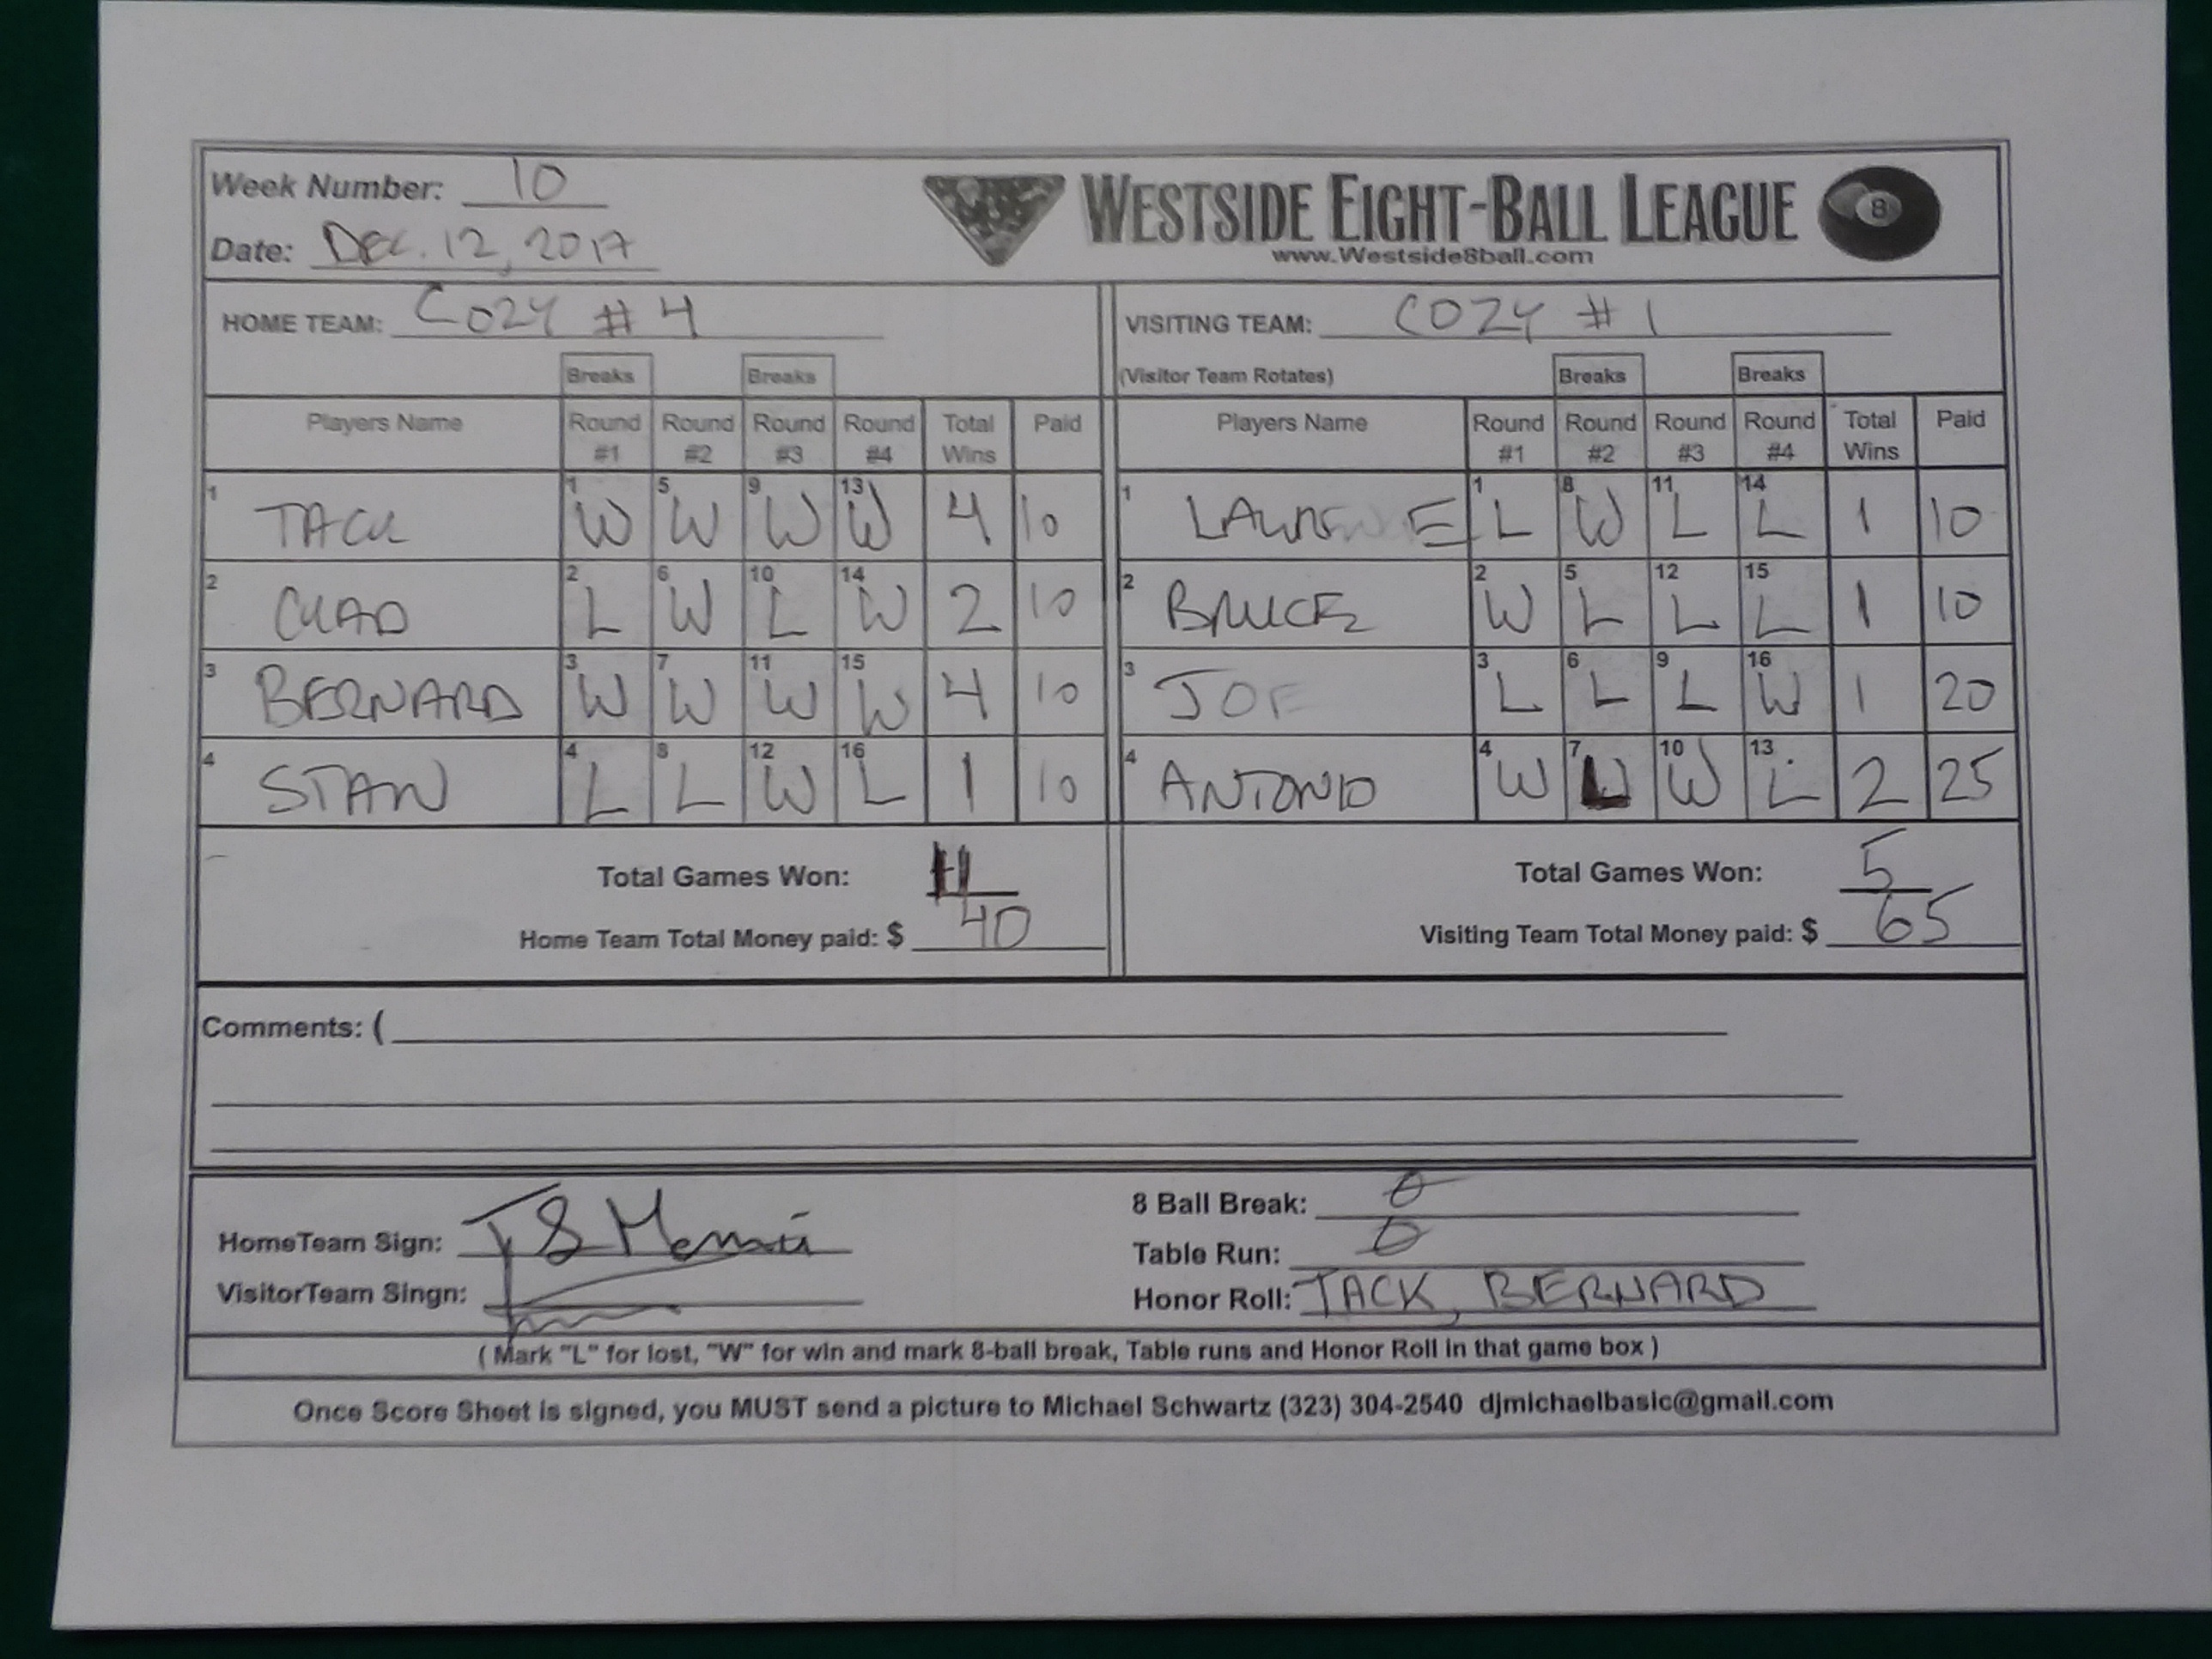 Week Number: 10
WESTSIDE EIGHT-BALL LEAGUE 8
Date: DEC. 12, 2017
www.Westside8ball.com
HOME TEAM: COZY #4 VISITING TEAM: COZY #1
Breaks Breaks (Visitor Team Rotates) Breaks Breaks
Players Name Round #1 Round #2 Round #3 Round #4 Total Wins Paid Players Name Round #1 Round #2 Round #3 Round #4 Total Wins Paid
1 TACK 1 W 5 W 9 W 13 W 4 10 1 1 L 8 W 11 L 14 L 1 10
2 CHAD 2 L 6 W 10 L 14 W 2 10 2 BRUCE 2 W 5 L 12 L 15 L 1 10
3 BERNARD 3 W 7 W 11 W 15 W 4 10 3 JOE 3 L 6 L 9 L 16 W 1 20
4 STAN 4 L 8 L 12 W 16 L 1 10 4 ANTONIO 4 W 7 L 10 W 13 L 2 25
Total Games Won: 11 Total Games Won: 5
Home Team Total Money paid: $ 40 Visiting Team Total Money paid: $ 65
Comments: (
8 Ball Break: 0
HomeTeam Sign:
Table Run: 0
VisitorTeam Singn:
Honor Roll: TACK, BERNARD
( Mark "L" for lost, "W" for win and mark 8-ball break, Table runs and Honor Roll in that game box )
Once Score Sheet is signed, you MUST send a picture to Michael Schwartz (323) 304-2540 djmichaelbasic@gmail.com